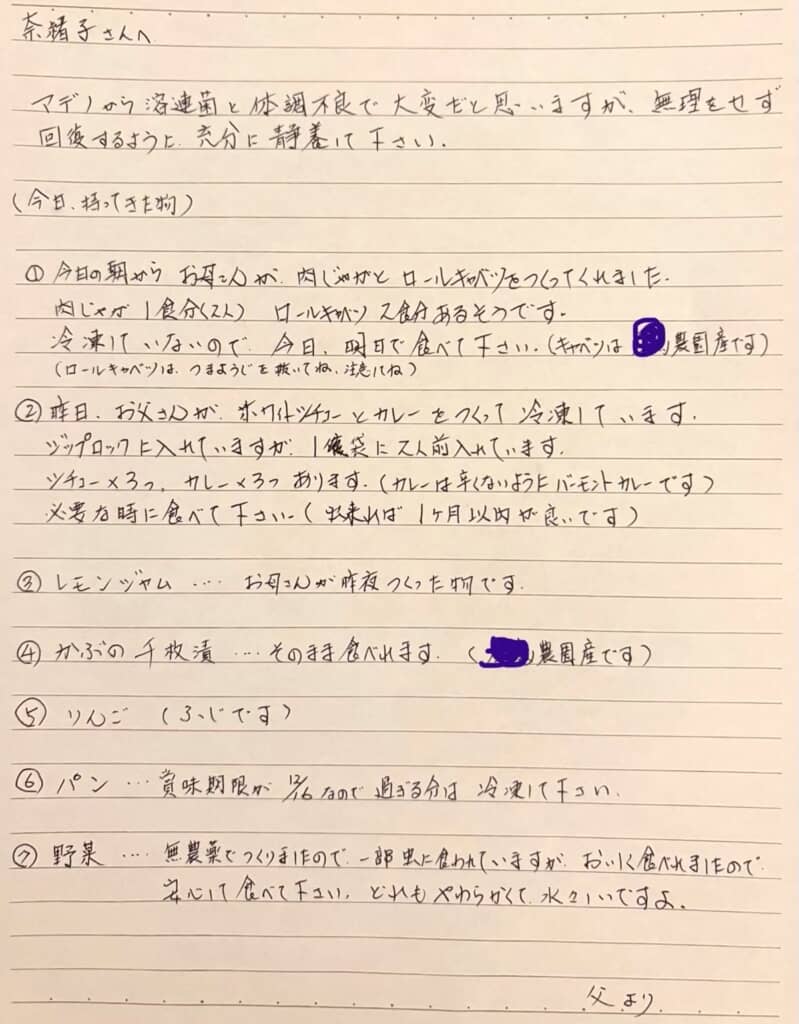 奈緒子さんへ
マデノから溶連菌と体調不良で大変だと思いますが、無理をせず
回復するように、充分に静養して下さい。
(今日、持ってきた物)
① 今日の朝から お母さんが、肉じゃがと ロールキャベツをつくってくれました。
肉じゃが 1食分(2人) ロールキャベツ 2食分あるそうです。
冷凍していないので、今日、明日で食べて下さい。(キャベツは 農園産です)
(ロールキャベツは、つまようじを抜いてね、注意してね)
② 昨日、お父さんが、ホワイトシチューとカレーをつくって冷凍しています。
ジップロックに入れていますが、1袋に2人前入れています。
シチュー×3つ、カレー×3つあります。(カレーは辛くないようにバーモントカレーです)
必要な時に食べて下さい。(出来れば 1ヶ月以内が良いです)
③ レモンジャム … お母さんが昨夜つくった物です。
④ かぶの千枚漬 … そのまま食べれます。( 農園産です)
⑤ りんご (ふじです)
⑥ パン … 賞味期限が 12/16なので 過ぎる分は 冷凍して下さい。
⑦ 野菜 … 無農薬でつくりましたので、一部虫に食われていますが、おいしく食べれましたので、
安心して食べて下さい。どれもやわらかくて、水々しいですよ。
父より